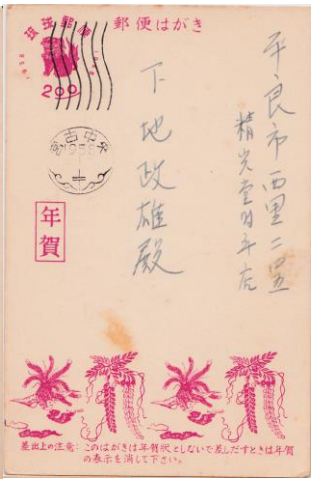 琉球郵便
郵便はがき
2¢
平良市西里二四五
精光堂時計店
下地政雄殿
宮古
年賀
差出上の注意:このはがきは年賀状としないで差しだすときは年賀
の表示を消して下さい。